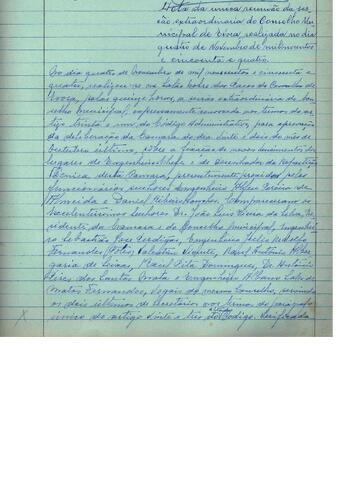 Acta da unica reunião da ses-
são extraordinaria do Conselho Mu-
nicipal de Evora, realizada no dia
quatro de Novembro de mil novecentos
e cincoenta e quatro.
No dia quatro de Novembro de mil novecentos e cincoenta e
quatro, realizou-se na Salas Nobre dos Paços do Concelho de
Evora, pelas quinze horas, a sessão extraordinaria do Con-
selho Municipal, expressamente convocada nos termos do ar-
tigo trinta e nove do Codigo Administrativo, para aprovação
da deliberação da Camara do dia vinte e dois do mês de
Outubro ultimo, sobre a fixação de novos vencimentos dos
lugares de Engenheiro Chefe e de Desenhador da Repartição
Técnica desta Camara, presentemente providos pelos
funcionários senhores Engenheiro
Almeida e Daniel Ribeiro Compareceram os
Excelentissimos Senhores Dr. João Luis Vieira da Silva, Pre-
sidente da Camara e do Conselho Municipal, Engenhei-
ro Sebastião José Perdigão, Engenheiro Hélio Rodolfo
Fernandes Valentim Vicente, António
de Raul Pita Domingues, Dr. António
Pires dos Santos e Engenheiro Alvaro
Matos Fernandes, vogais do mesmo Conselho, servindo
os dois ultimos de secretários nos termos do paragrafo
unico do artigo vinte e três do citado Codigo. Verificada